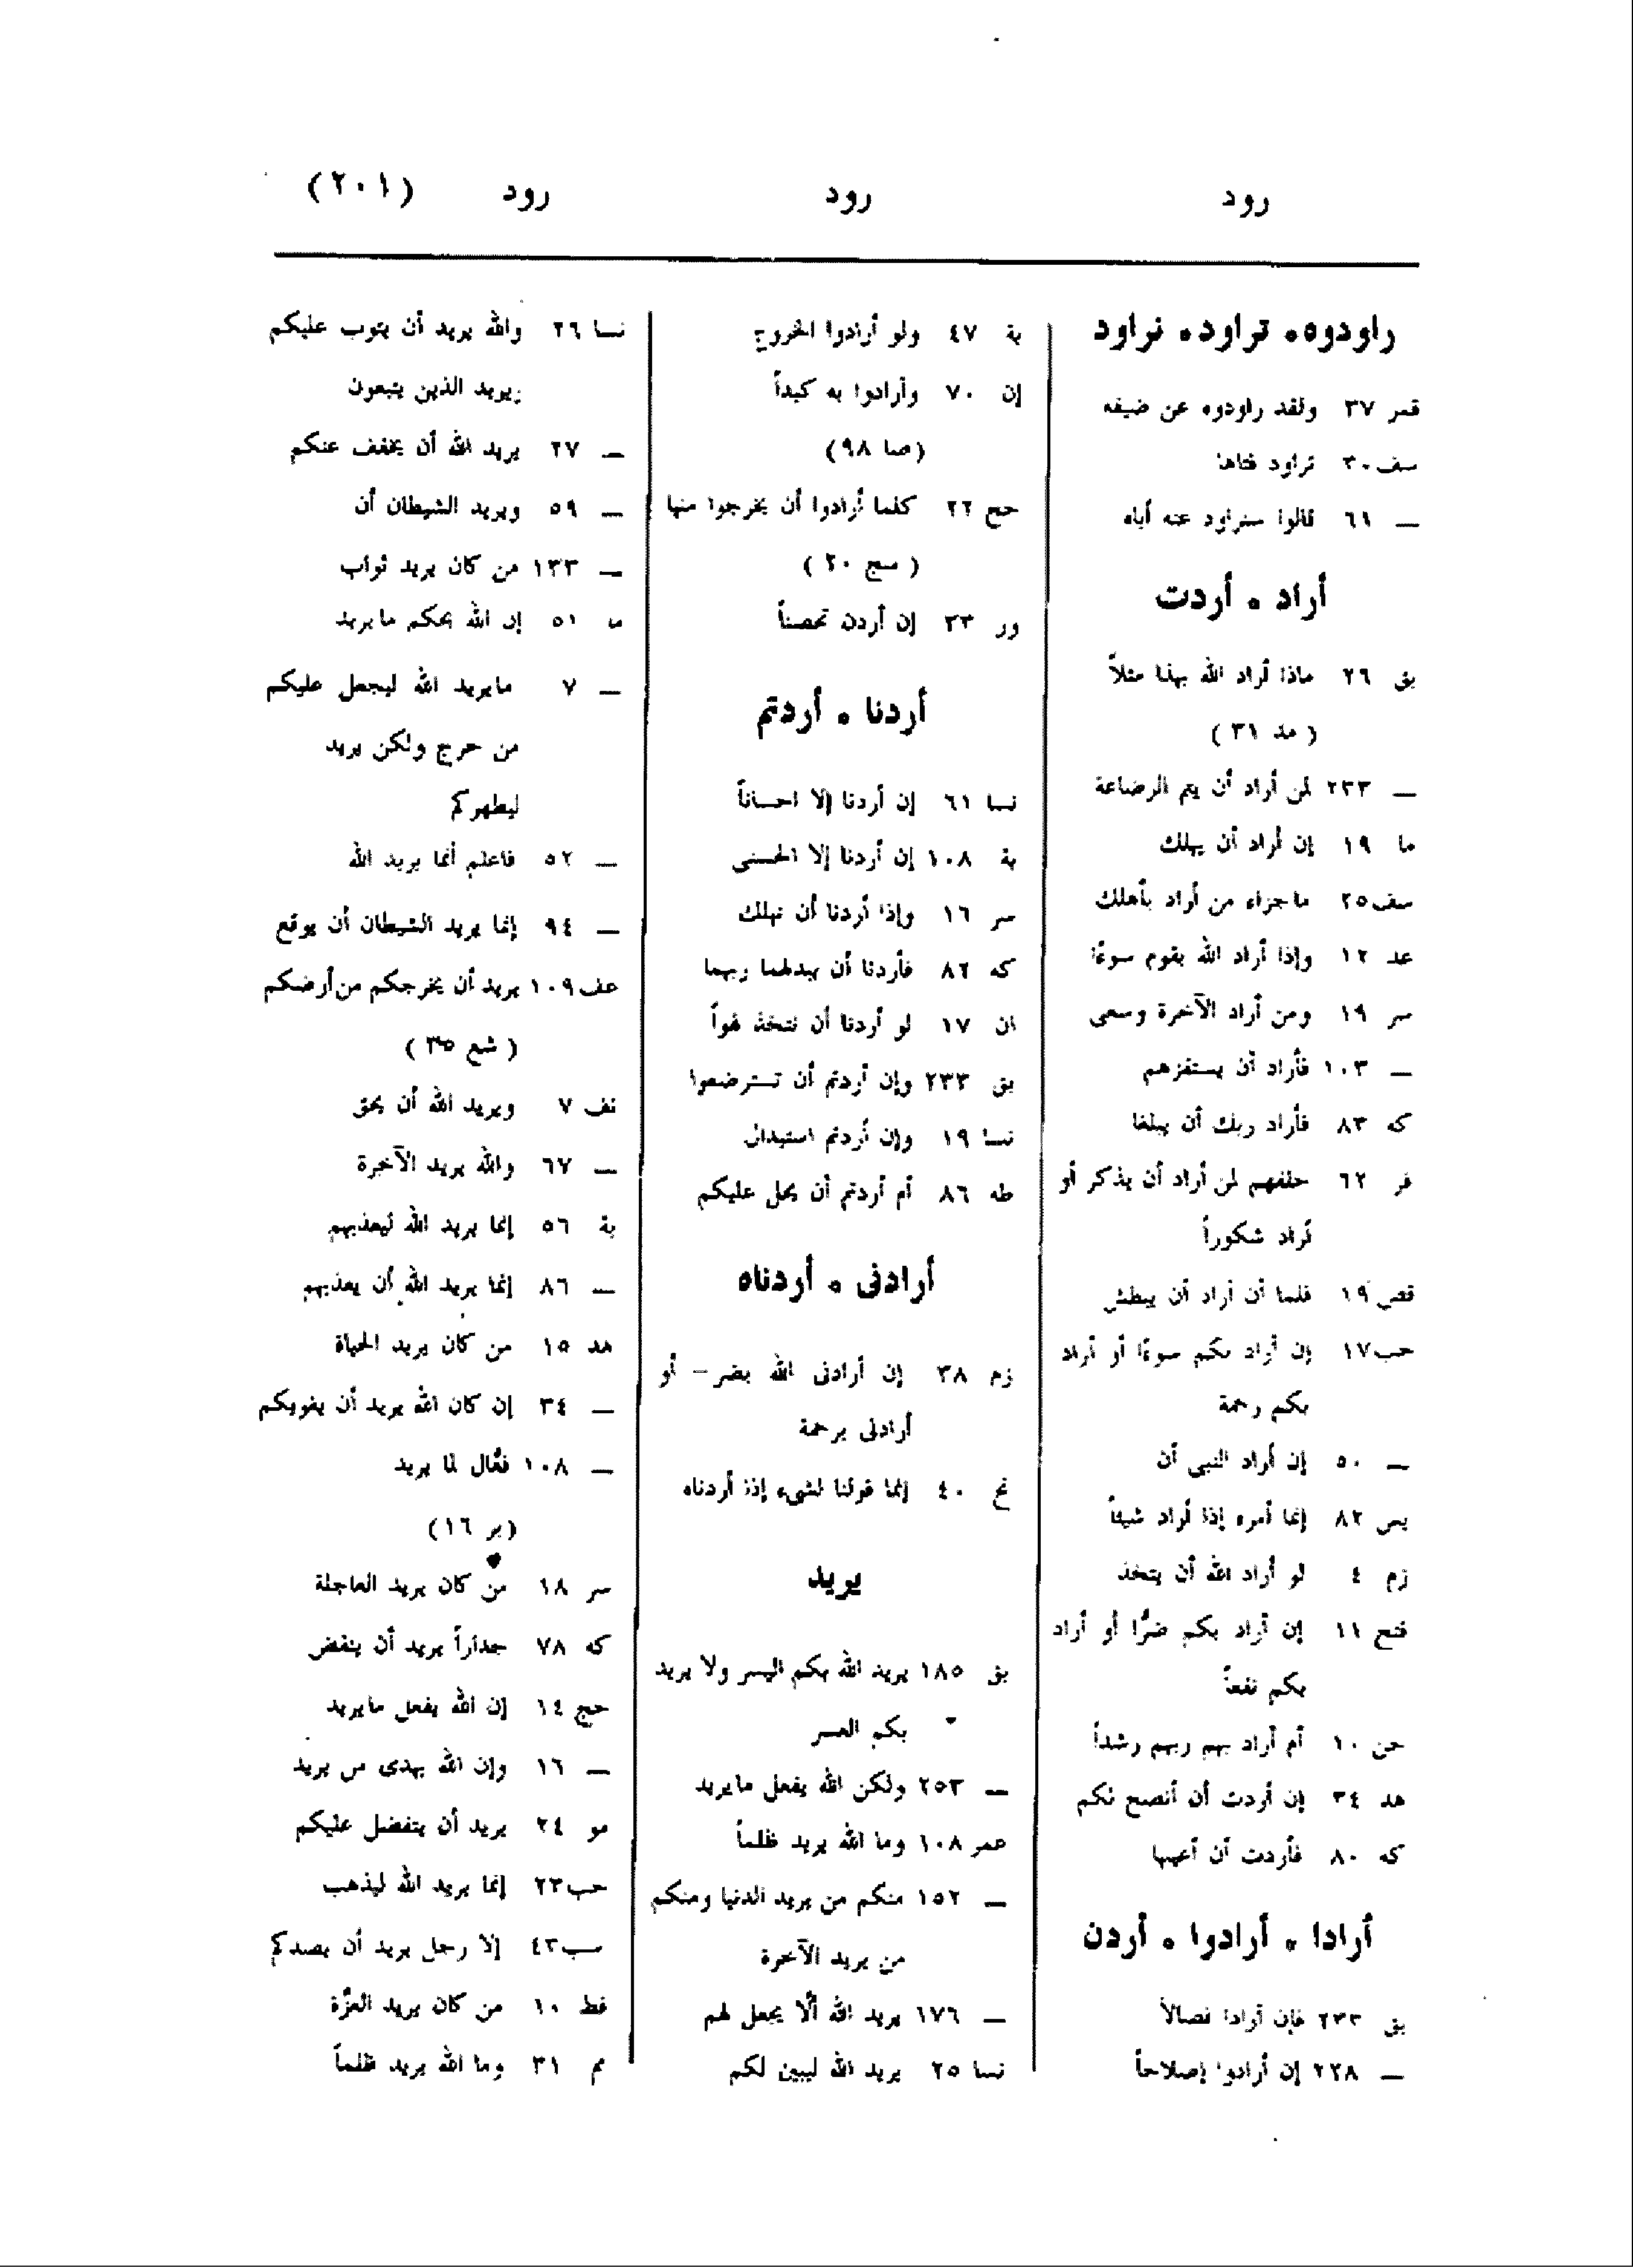 رود
رود
رود (٢٠١)
راودوه . تراود . نراود
قمر ٣٧ ولقد راودوه عن ضيفه
سف ٣٠ تراود فتاها
— ٦١ قالوا سنراود عنه أباه
أراد . أردت
بق ٢٦ ماذا أراد الله بهذا مثلاً
( مد ٣١ )
— ٢٣٣ لمن أراد أن يتم الرضاعة
ما ١٩ إن أراد أن يهلك
سف ٢٥ ماجزاء من أراد بأهلك
عد ١٢ وإذا أراد الله بقوم سوءًا
سر ١٩ ومن أراد الآخرة وسعى
— ١٠٣ فأراد أن يستفزهم
كه ٨٣ فأراد ربك أن يبلغا
فر ٦٢ خلفهم لمن أراد أن يذكر أو
أراد شكوراً
قص ١٩ فلما أن أراد أن يبطش
حب ١٧ إن أراد بكم سوءًا أو أراد
بكم رحمة
— ٥٠ إن أراد النبى أن
يس ٨٢ إنما أمره إذا أراد شيئاً
زم ٤ لو أراد الله أن يتخذ
فتح ١١ إن أراد بكم ضرًّا أو أراد
بكم نفعاً
حن ١٠ أم أراد بهم ربهم رشداً
هد ٣٤ إن أردت أن أنصح لكم
كه ٨٠ فأردت أن أعيبها
أرادا . أرادوا . أردن
بق ٢٣٣ فإن أرادا فصالاً
— ٢٢٨ إن أرادوا إصلاحاً
بة ٤٧ ولو أرادوا الخروج
إن ٧٠ وأرادوا به كيداً
(صا ٩٨)
حج ٢٢ كلما أرادوا أن يخرجوا منها
( سج ٢٠ )
ور ٣٣ إن أردن تحصناً
أردنا . أردتم
نسا ٦١ إن أردنا إلا احساناً
بة ١٠٨ إن أردنا إلا الحسنى
سر ١٦ وإذا أردنا أن نهلك
كه ٨٢ فأردنا أن يبدلهما ربهما
ان ١٧ لو أردنا أن نتخذ لهواً
بق ٢٣٣ وإن أردتم أن تسترضعوا
نسا ١٩ وإن أردتم استبدال
طه ٨٦ أم أردتم أن يحل عليكم
أرادنى . أردناه
زم ٣٨ إن أرادنى الله بضر — أو
أرادنى برحمة
نح ٤٠ إنما قولنا لشىء إذا أردناه
يريد
بق ١٨٥ يريد الله بكم اليسر ولا يريد
بكم العسر
— ٢٥٣ ولكن الله يفعل مايريد
عمر ١٠٨ وما الله يريد ظلماً
— ١٥٢ منكم من يريد الدنيا ومنكم
من يريد الآخرة
— ١٧٦ يريد الله ألَّا يجعل لهم
نسا ٢٥ يريد الله ليبين لكم
نسا ٢٦ والله يريد أن يتوب عليكم
ويريد الذين يتبعون
— ٢٧ يريد الله أن يخفف عنكم
— ٥٩ ويريد الشيطان أن
— ١٣٣ من كان يريد ثواب
ما ٥١ إن الله يحكم مايريد
— ٧ مايريد الله ليجعل عليكم
من حرج ولكن يريد
ليطهركم
— ٥٢ فاعلم أنما يريد الله
— ٩٤ إنما يريد الشيطان أن يوقع
عف ١٠٩ يريد أن يخرجكم من أرضكم
( شع ٣٥ )
نف ٧ ويريد الله أن يحق
— ٦٧ والله يريد الآخرة
بة ٥٦ إنما يريد الله ليعذبهم
— ٨٦ إنما يريد الله أن يعذبهم
هد ١٥ من كان يريد الحياة
— ٣٤ إن كان الله يريد أن يغويكم
— ١٠٨ فعَّال لما يريد
(بر ١٦)
سر ١٨ من كان يريد العاجلة
كه ٧٨ جداراً يريد أن ينقض
حج ١٤ إن الله يفعل مايريد
— ١٦ وإن الله يهدى من يريد
مو ٢٤ يريد أن يتفضل عليكم
حب ٢٣ إنما يريد الله ليذهب
سب ٤٣ إلا رجل يريد أن يصدكم
فط ١٠ من كان يريد العزَّة
مم ٣١ وما الله يريد ظلماً